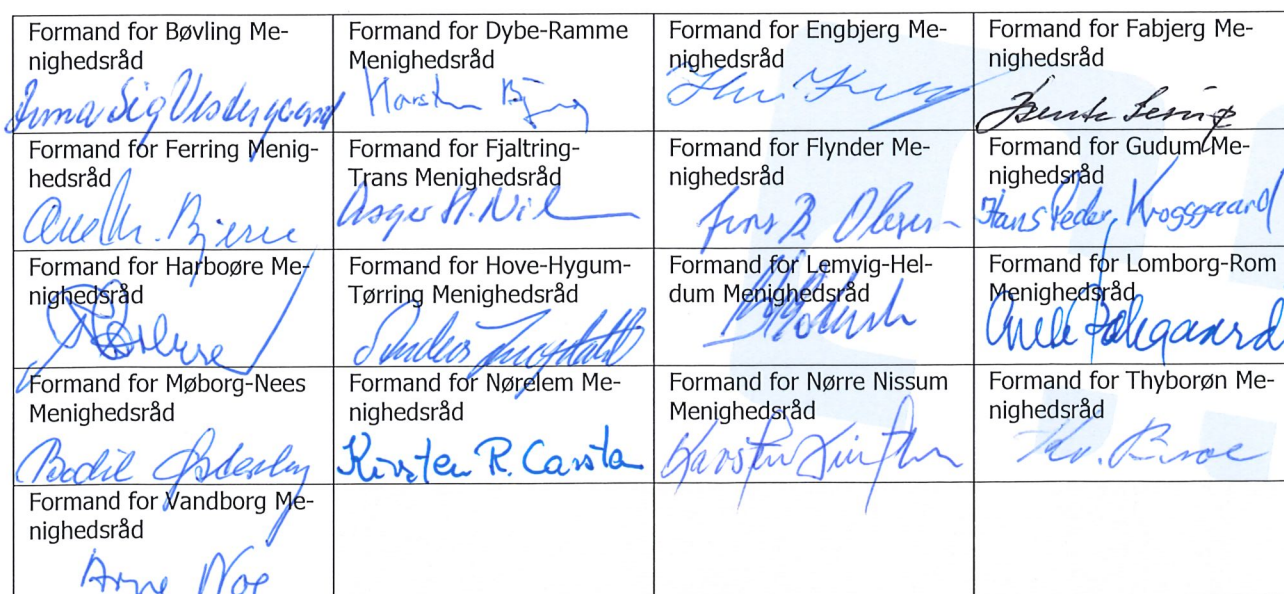 Formand for Bøvling Me-
nighedsråd
Irma Sig Vestergaard
Formand for Dybe-Ramme
Menighedsråd
Formand for Engbjerg Me-
nighedsråd
Formand for Fabjerg Me-
nighedsråd
Bente
Formand for Ferring Menig-
hedsråd
Bjerre
Formand for Fjaltring-
Trans Menighedsråd
Asger
Formand for Flynder Me-
nighedsråd
Jens B. Olesen
Formand for Gudum Me-
nighedsråd
Hans Peder Krogsgaard
Formand for Harboøre Me-
nighedsråd
Formand for Hove-Hygum-
Tørring Menighedsråd
Anders
Formand for Lemvig-Hel-
dum Menighedsråd
Formand for Lomborg-Rom
Menighedsråd
Formand for Møborg-Nees
Menighedsråd
Bodil Østerby
Formand for Nørelem Me-
nighedsråd
Kirsten R. Carsta
Formand for Nørre Nissum
Menighedsråd
Karsten
Formand for Thyborøn Me-
nighedsråd
Formand for Vandborg Me-
nighedsråd
Arne Noe